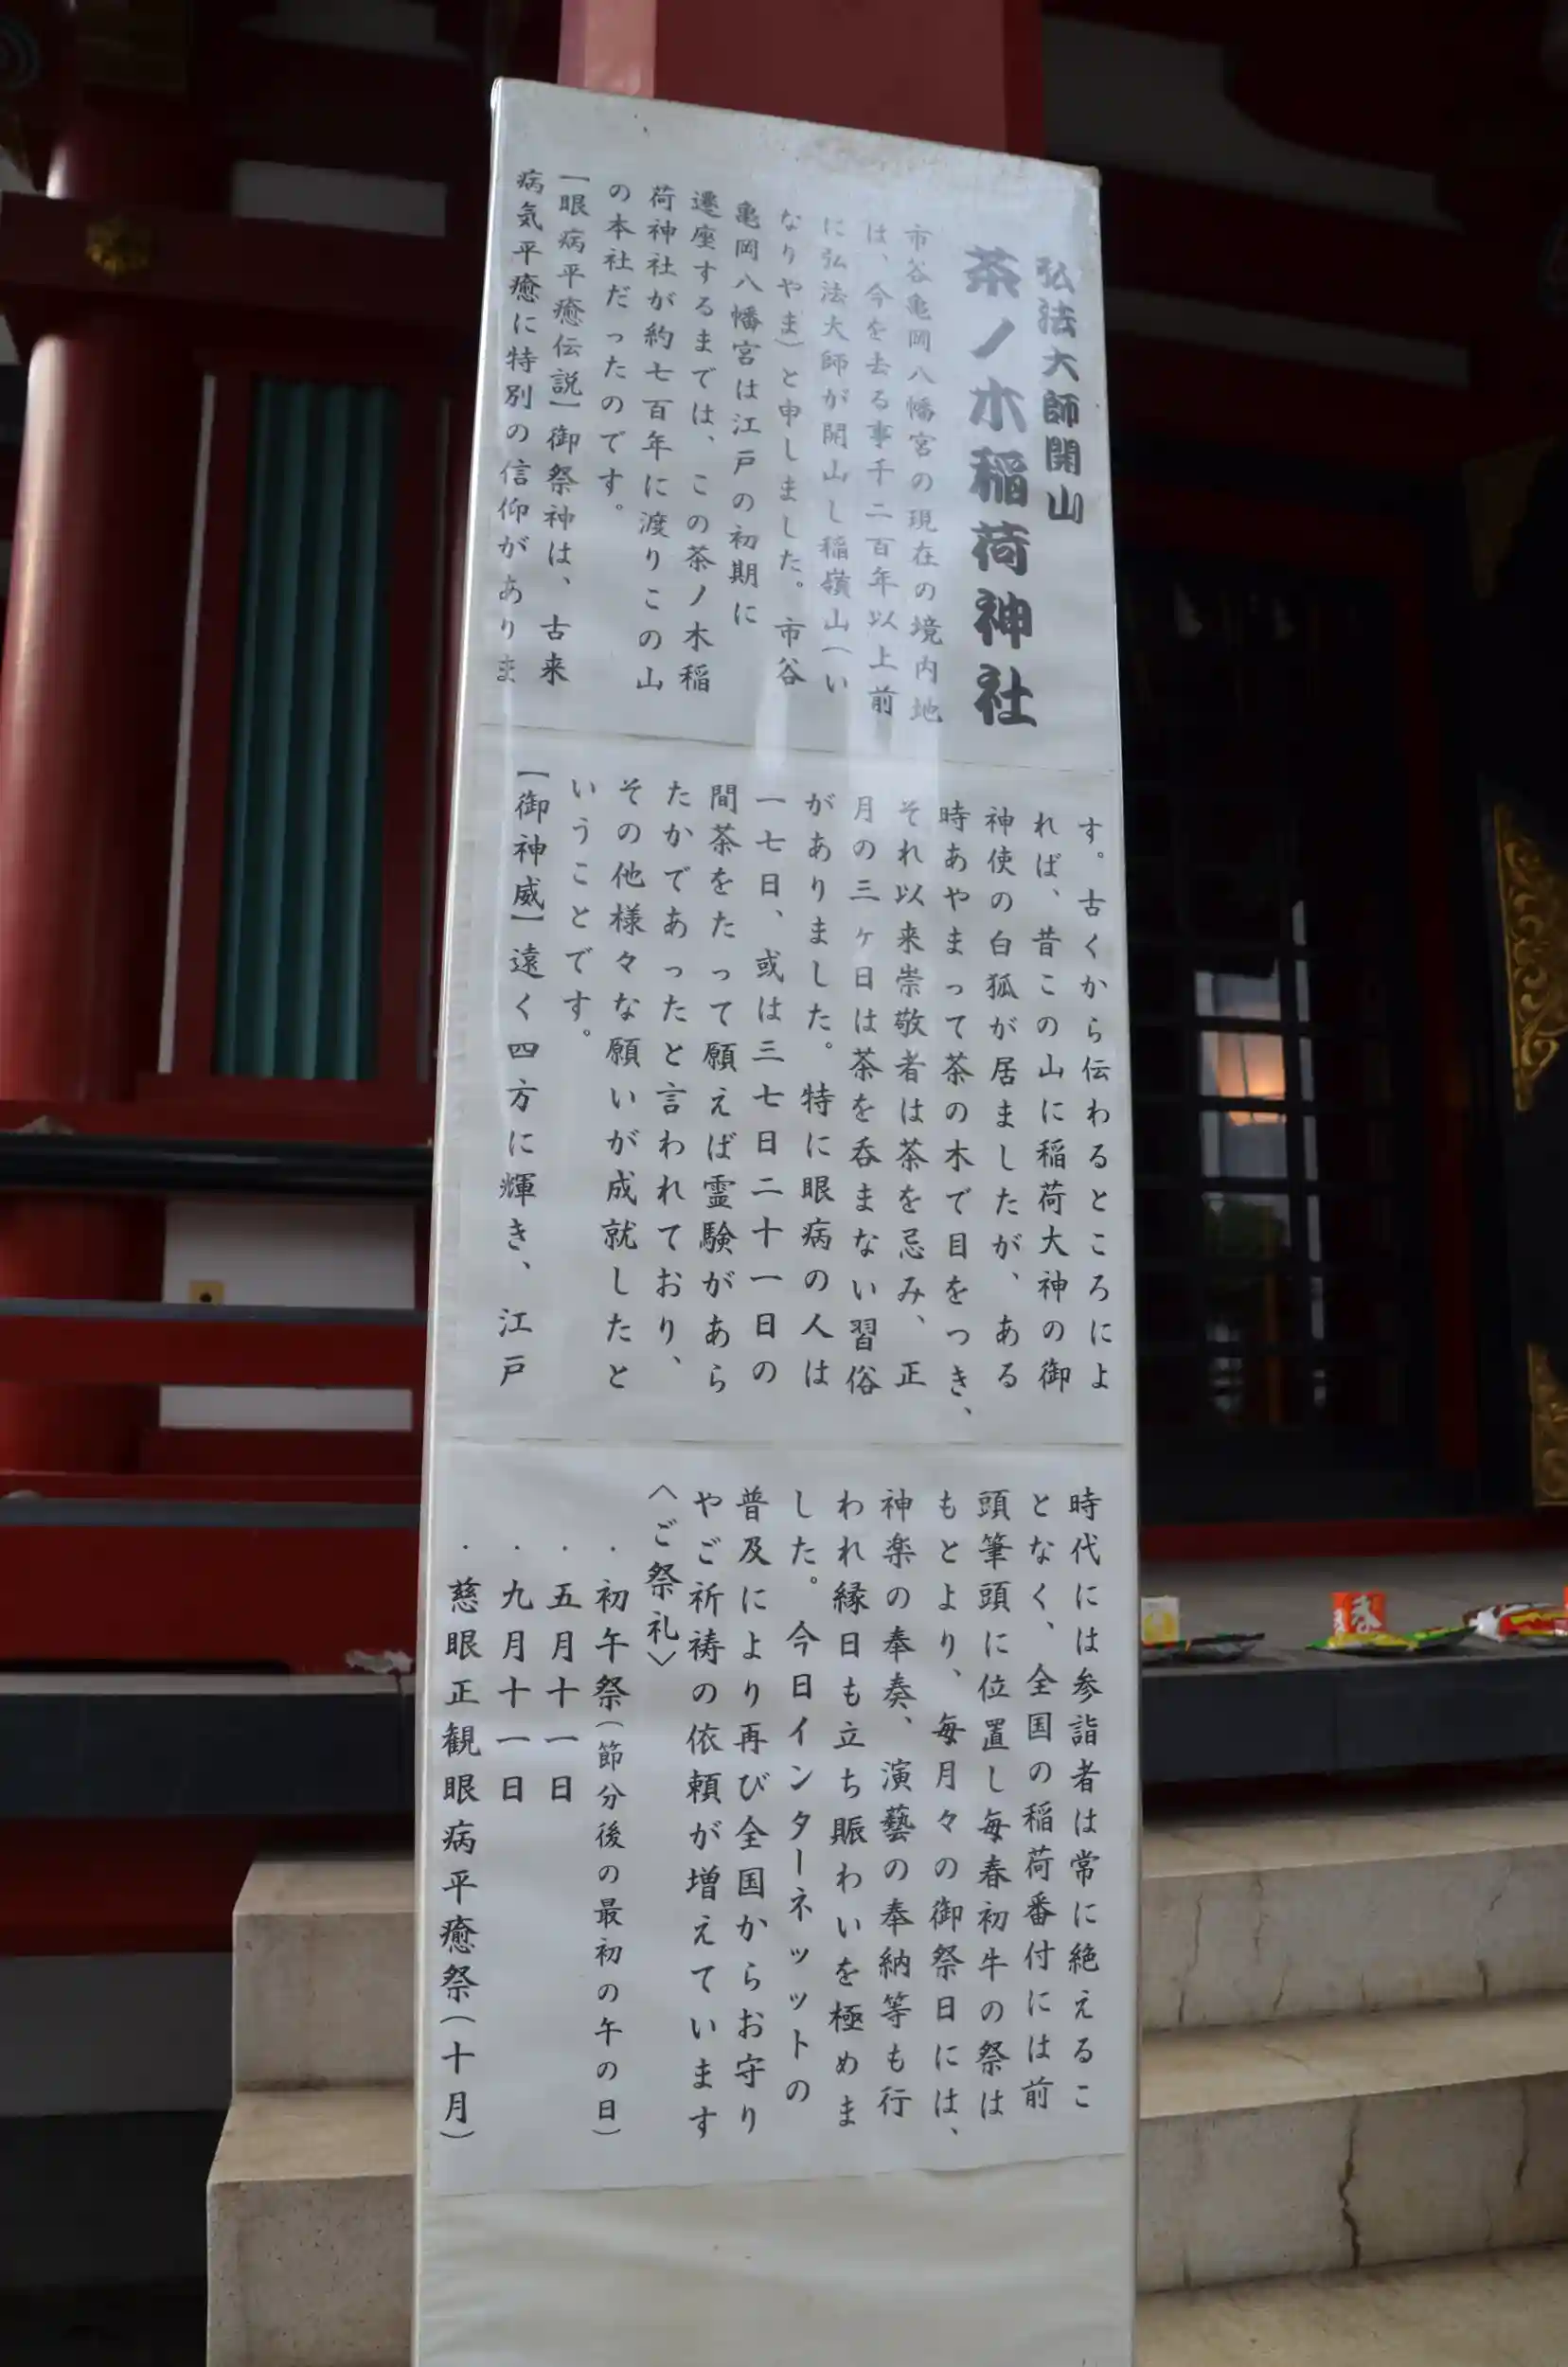 弘法大師開山
茶ノ木稲荷神社
市谷亀岡八幡宮の現在の境内地
は、今を去る事千二百年以上前
に弘法大師が開山し稲嶺山(い
なりやま)と申しました。市谷
亀岡八幡宮は江戸の初期に
遷座するまでは、この茶ノ木稲
荷神社が約七百年に渡りこの山
の本社だったのです。
【眼病平癒伝説】御祭神は、古来
病気平癒に特別の信仰がありま
す。古くから伝わるところによ
れば、昔この山に稲荷大神の御
神使の白狐が居ましたが、ある
時あやまって茶の木で目をつき、
それ以来崇敬者は茶を忌み、正
月の三ヶ日は茶を呑まない習俗
がありました。特に眼病の人は
一七日、或は三七日二十一日の
間茶をたって願えば霊験があら
たかであったと言われており、
その他様々な願いが成就したと
いうことです。
【御神威】遠く四方に輝き、江戸
時代には参詣者は常に絶えるこ
となく、全国の稲荷番付には前
頭筆頭に位置し毎春初牛の祭は
もとより、毎月々の御祭日には、
神楽の奉奏、演藝の奉納等も行
われ縁日も立ち賑わいを極めま
した。今日インターネッットの
普及により再び全国からお守り
やご祈祷の依頼が増えています
〈ご祭礼〉
・初午祭(節分後の最初の午の日)
・五月十一日
・九月十一日
・慈眼正観眼病平癒祭(十月)